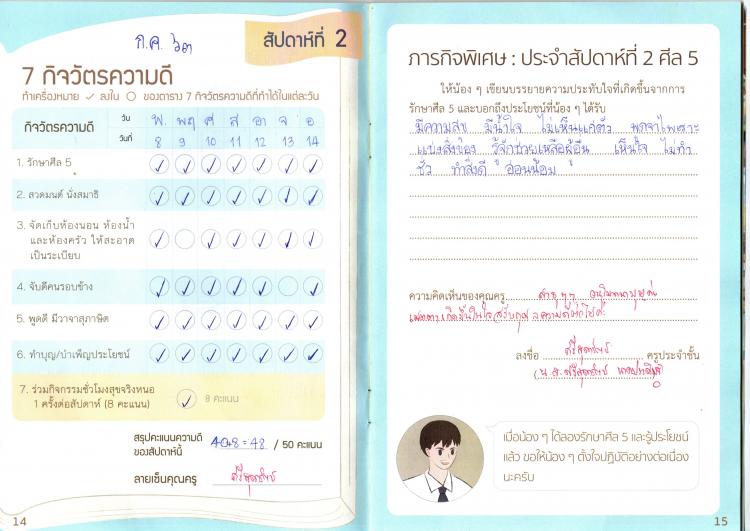 ก.ค. ๖๓
สัปดาห์ที่ 2
7 กิจวัตรความดี
ทำเครื่องหมาย ✓ ลงใน ○ ของตาราง 7 กิจวัตรความดีที่ทำได้ในแต่ละวัน
กิจวัตรความดี วัน พ. พฤ ศ ส อา จ อ
วันที่ 8 9 10 11 12 13 14
1. รักษาศีล 5 ✓ ✓ ✓ ✓ ✓ ✓ ✓
2. สวดมนต์ นั่งสมาธิ ✓ ✓ ✓ ✓ ✓ ✓ ✓
3. จัดเก็บห้องนอน ห้องน้ำ
และห้องครัว ให้สะอาด ✓ ○ ✓ ✓ ✓ ✓ ✓
เป็นระเบียบ
4. จับดีคนรอบข้าง ✓ ✓ ✓ ✓ ✓ ○ ✓
5. พูดดี มีวาจาสุภาษิต ✓ ✓ ✓ ✓ ✓ ✓ ✓
6. ทำบุญ/บำเพ็ญประโยชน์ ✓ ✓ ✓ ✓ ✓ ✓ ✓
7. ร่วมกิจกรรมชั่วโมงสุขจริงหนอ
1 ครั้งต่อสัปดาห์ (8 คะแนน) ✓ 8 คะแนน
สรุปคะแนนความดี
ของสัปดาห์นี้ 40+8 = 48 / 50 คะแนน
ลายเซ็นคุณครู
14
ภารกิจพิเศษ : ประจำสัปดาห์ที่ 2 ศีล 5
ให้น้อง ๆ เขียนบรรยายความประทับใจที่เกิดขึ้นจากการ
รักษาศีล 5 และบอกถึงประโยชน์ที่น้อง ๆ ได้รับ
มีความสุข มีน้ำใจ ไม่เห็นแก่ตัว พูดจาไพเราะ
แบ่งสิ่งของ รู้จักช่วยเหลือผู้อื่น เห็นใจ ไม่ทำ
ชั่ว ทำสิ่งดี อ่อนน้อม
ความคิดเห็นของคุณครู สาธุ ๆ ๆ
ลงชื่อ ครูประจำชั้น
เมื่อน้อง ๆ ได้ลองรักษาศีล 5 และรู้ประโยชน์
แล้ว ขอให้น้อง ๆ ตั้งใจปฏิบัติอย่างต่อเนื่อง
นะครับ
15